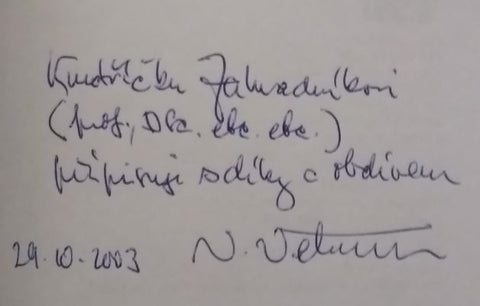 Kmotříčku Zahradníkovi
(prof., DSc. etc. etc.)
připisuji s díky a obdivem
29.10.2003